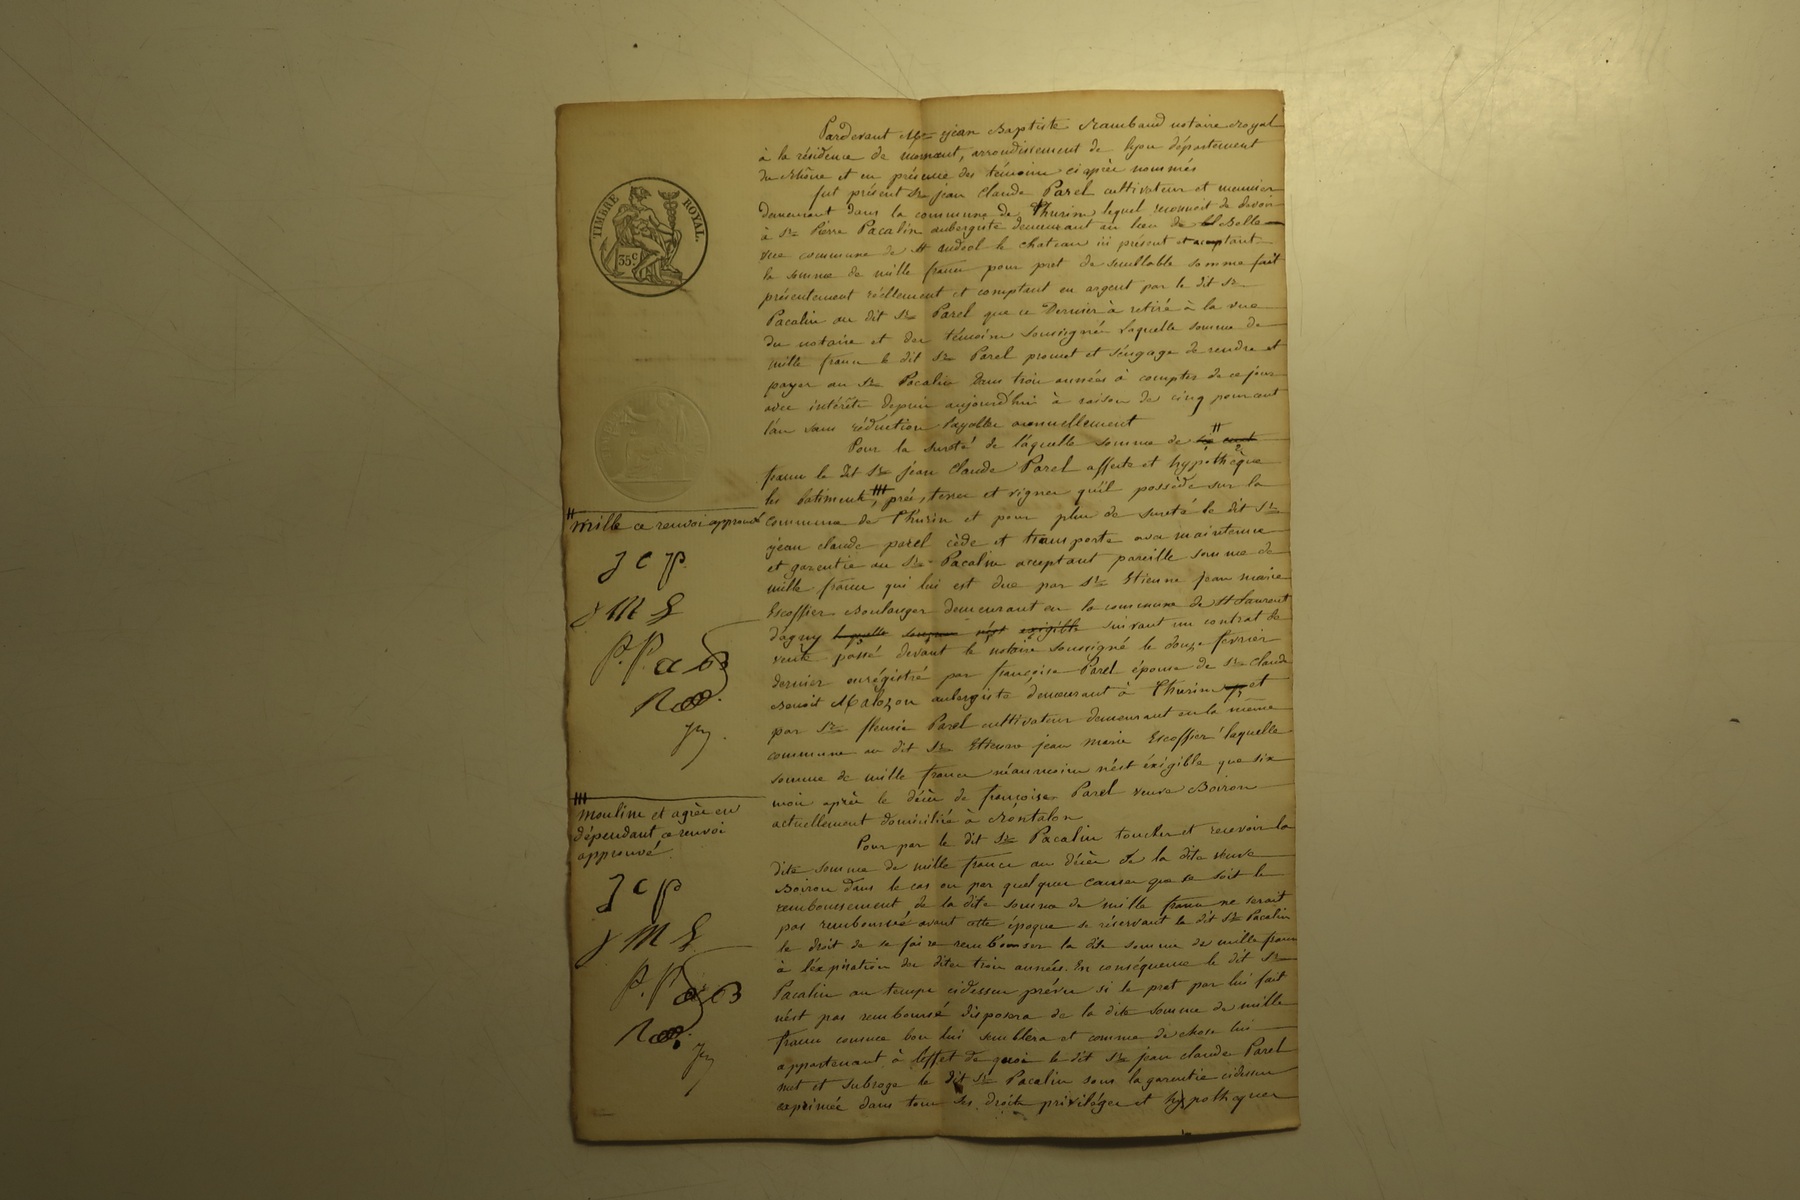 TIMBRE ROYAL.
35c
Pardevant Me jean Baptiste Rambaud notaire Royal
à la résidence de mornant, arrondissement de lyon département
du Rhône et en présence des témoins ciaprès nommés
fut présent Sr jean Claude Parel cultivateur et meunier
demeurant dans la commune de Thurins lequel reconnoit devoir
à Sr Pierre Pacalin aubergiste demeurant au lieu de Belle
vue commune de St andeol le chateau ici présent et acceptant
la somme de mille francs pour pret de semblable somme fait
présentement réellement et comptant en argent par le dit Sr
Pacalin au dit Sr Parel que ce Dernier à retiré à la vue
du notaire et des témoins soussignés laquelle somme de
mille francs le dit Sr Parel promet et s'engage de rendre et
payer au Sr Pacalin dans trois années à compter de ce jour
avec intérêts depuis aujourd'hui à raison de cinq pourcent
l'an sans réduction payables annuellement
Pour la sureté de laquelle somme de
francs le dit Sr jean Claude Parel affecte et hypothèque
les batiments, prés, terres et vignes qu'il possède sur la
commune de Thurins et pour plus de sureté le dit Sr
jean claude parel cède et transporte avec maintenue
et garentie au Sr Pacalin acceptant pareille somme de
mille francs qui lui est due par Sr Etienne jean marie
Escoffier Boulanger demeurant en la commune de St Laurent
d'agny laquelle somme n'est exigible suivant un contrat de
vente passé devant le notaire soussigné le douze fevrier
dernier enrégistré par françoise Parel épouse de Sr Claude
Benoit Malozon aubergiste demeurant à Thurins et
par Sr fleurie Parel cultivateur demeurant en la même
commune au dit Sr Etienne jean Marie Escoffier laquelle
somme de mille francs néanmoins n'est éxigible que six
mois après le décès de françoise Parel veuve Boiron
actuellement domiciliée à Rontalon
Pour par le dit Sr Pacalin toucher et recevoir la
dite somme de mille francs au décès de la dite veuve
Boiron dans le cas ou par quelques causes que ce soit le
remboursement de la dite somme de mille francs ne serait
pas remboursé avant cette époque se réservant le dit Sr Pacalin
le droit de se faire rembourser la dite somme de mille francs
à l'éxpiration des dites trois années. En conséquence le dit Sr
Pacalin au temps cidessus prévu si le pret par lui fait
n'est pas remboursé disposera de la dite somme de mille
francs comme bon lui semblera et comme de chose lui
appartenant à l'effet de quoi le dit Sr jean claude Parel
met et subroge le dit Sr Pacalin sous la garentie cidessus
exprimée dans tous ses droits privilèges et hypothèques
mille ce renvoi approuvé
J C P
J M E
P. P
moulins et agrès en
dépendant ce renvoi
approuvé
J C P
J M E
P. P